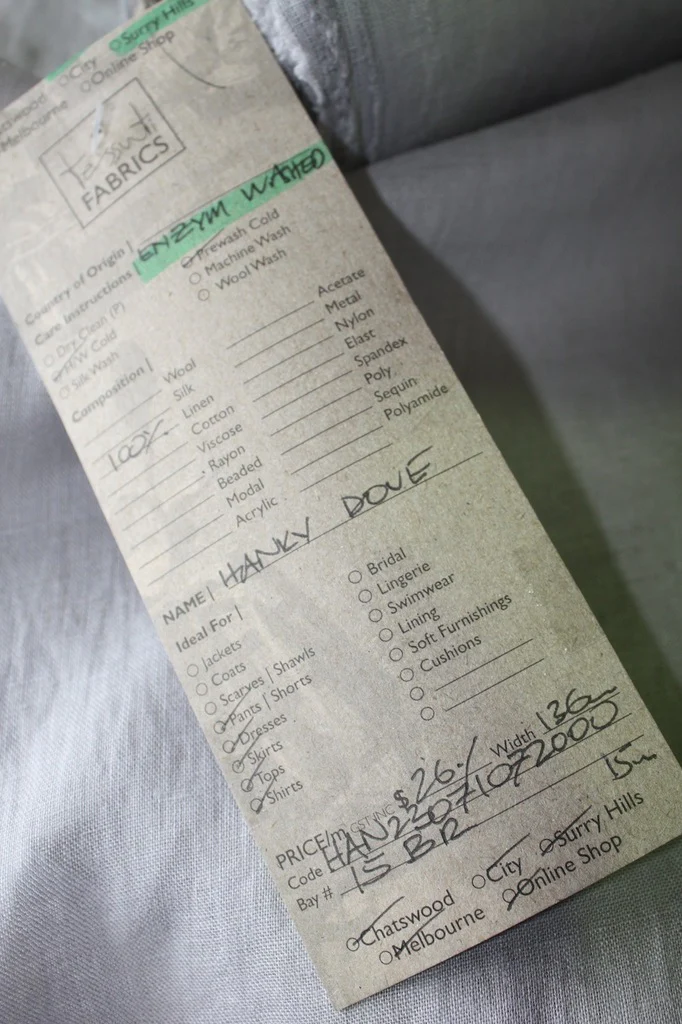 Surry Hills
City
Online Shop
Melbourne
Tessuti
FABRICS
Country of Origin |
Care Instructions | ENZYM WASHED
Dry Clean (P)
Prewash Cold
Machine Wash
Cold
Wool Wash
Silk Wash
Composition |
Wool
Silk
Linen
100% Cotton
Viscose
Rayon
Beaded
Modal
Acrylic
Acetate
Metal
Nylon
Elast
Spandex
Poly
Sequin
Polyamide
NAME | HANKY DOVE
Ideal For |
Jackets
Coats
Scarves | Shawls
Pants | Shorts
Dresses
Skirts
Tops
Shirts
Bridal
Lingerie
Swimwear
Lining
Soft Furnishings
Cushions
PRICE/m GST INC $26./ Width 136cm
Code HAN22071072000
Bay # 15 BR 15m
Chatswood City Surry Hills
Melbourne Online Shop